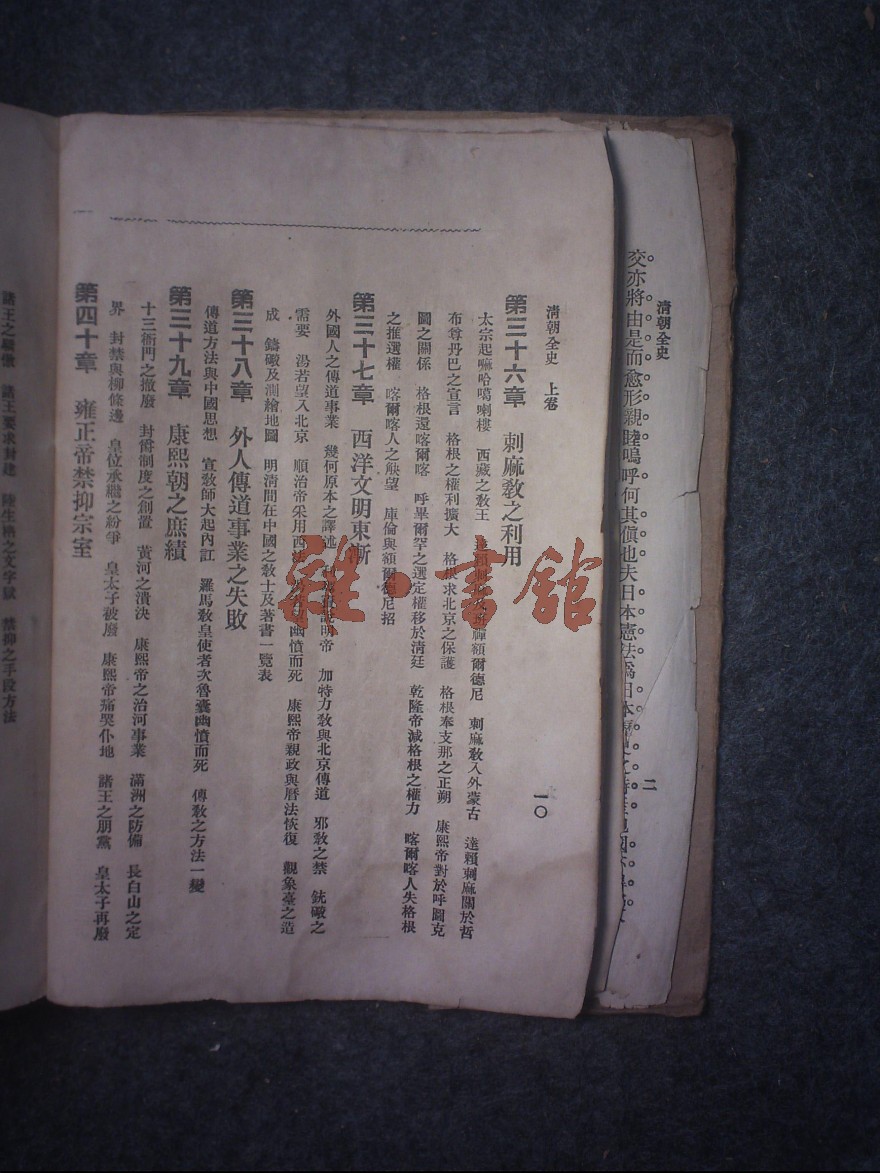 交亦將由是而愈形親睦嗚呼何其愼也夫日本憲法爲日本
清朝全史
二
清朝全史 上卷
一〇
第三十六章 刺麻教之利用
太宗起嘛哈噶喇樓 西藏之教王 達賴 額爾德尼 刺麻教入外蒙古 達賴刺麻關於哲
布尊丹巴之宣言 格根之權利擴大 格根求北京之保護 格根奉支那之正朔 康熙帝對於呼圖克
圖之關係 格根還喀爾喀 呼畢爾罕之選定權移於清廷 乾隆帝減格根之權力 喀爾喀人失格根
之推選權 喀爾喀人之觖望 庫倫與額爾德尼招
第三十七章 西洋文明東漸
外國人之傳道事業 幾何原本之譯述 明帝 加特力教與北京傳道 邪教之禁 銃礮之
需要 湯若望入北京 順治帝采用西法 幽憤而死 康熙帝親政與曆法恢復 觀象臺之造
成 鑄礮及測繪地圖 明清間在中國之教士及著書一覽表
第三十八章 外人傳道事業之失敗
傳道方法與中國思想 宣教師大起內訌 羅馬教皇使者次魯囊幽憤而死 傳教之方法一變
第三十九章 康熙朝之庶績
十三衙門之撤廢 封爵制度之創置 黃河之潰決 康熙帝之治河事業 滿洲之防備 長白山之定
界 封禁與柳條邊 皇位承繼之紛爭 皇太子被廢 康熙帝痛哭仆地 諸王之朋黨 皇太子再廢
第四十章 雍正帝禁抑宗室
諸王之驕傲 諸王要求封建 陸生柟之文字獄 禁抑之手段方法
雜·書館